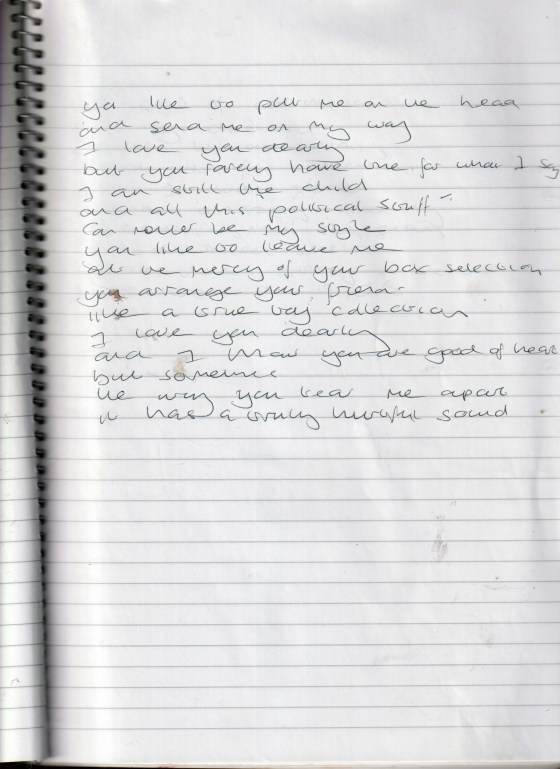 you like to pull me on the head
and send me on my way
I love you dearly
but you rarely have time for what I say
I am still the child
and all this political stuff
can never be my style
you like to leave me
at the mercy of your box selection
you arrange your friend
like a time toy collection
I love you dearly
and I know you are good of heart
but sometimes
the way you tear me apart
it has a truly hurtful sound